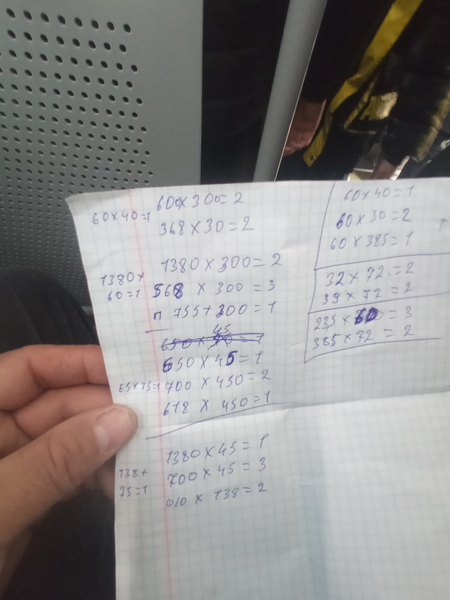 60×40=1
600×300=2
368×30=2
1380×
60=1
1380×300=2
568 × 300=3
п 755+300=1
45
650×45=1
65×75=1
700×450=2
618 × 450=1
1380×45=1
700×45=3
738+
75=1
010×738=2
60×40=1
60×30=2
60×385=1
32×72.=2
39×72=2
235×60=3
385×72=2